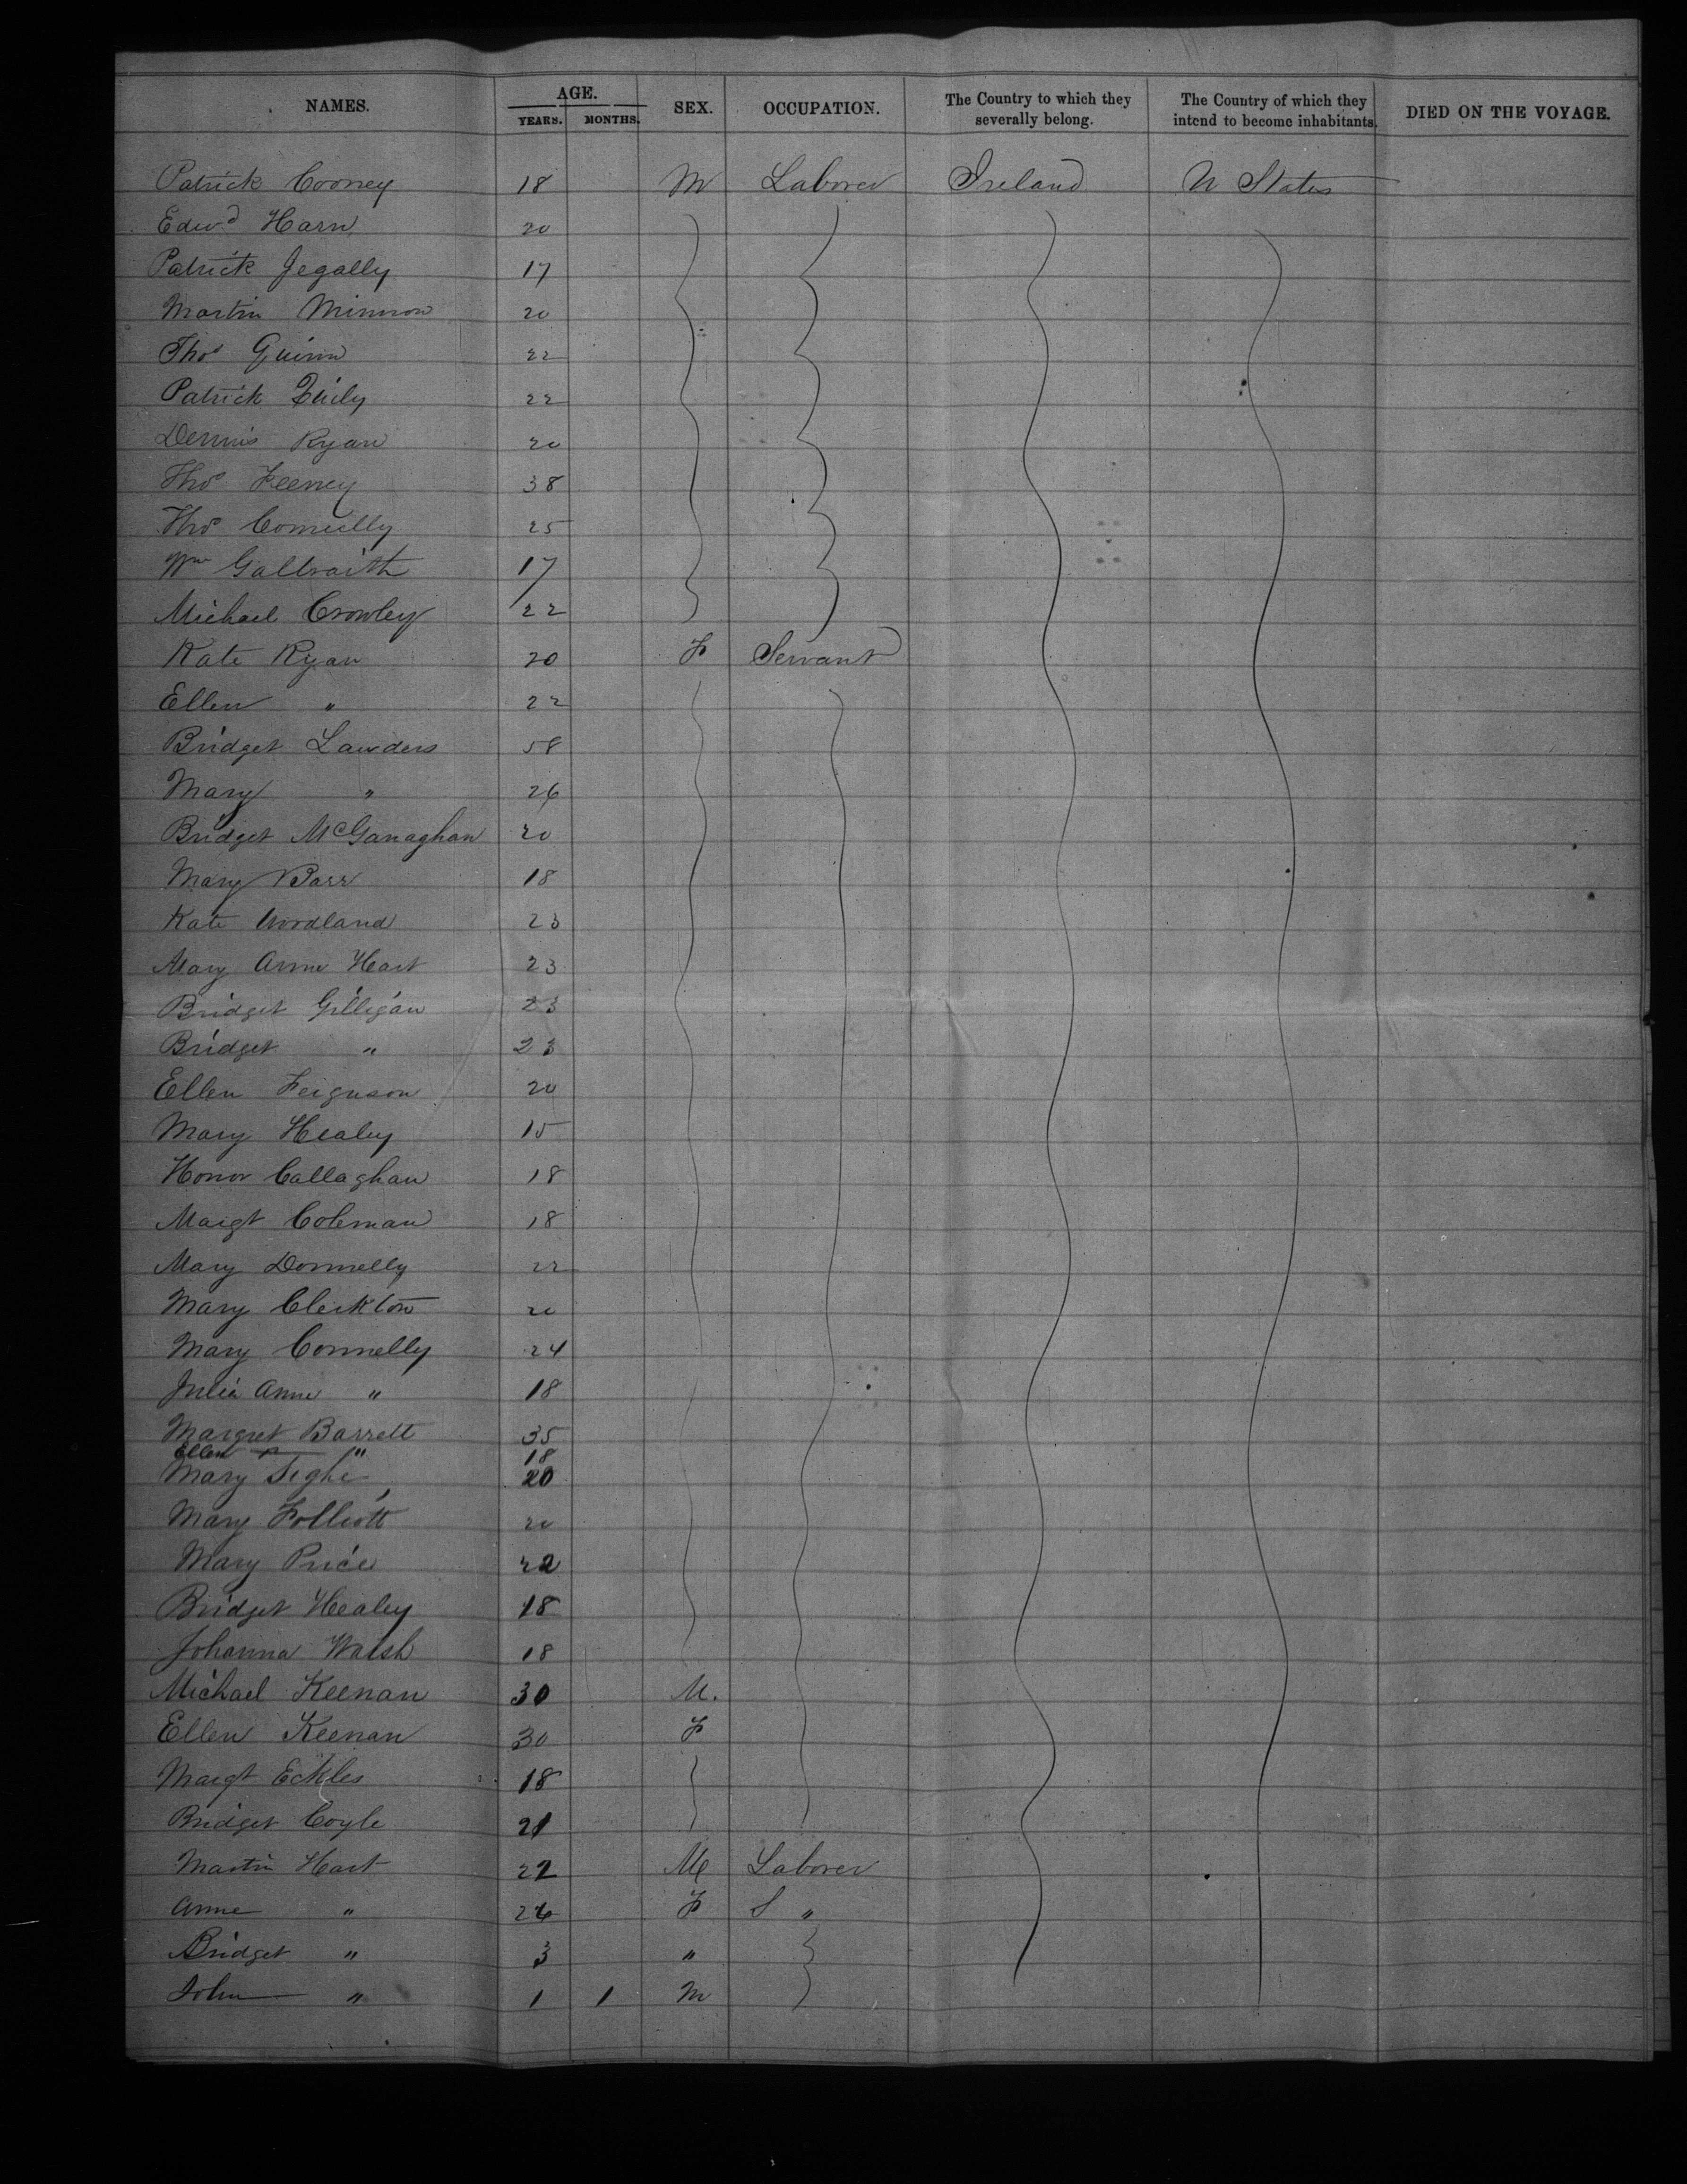 NAMES. AGE. SEX. OCCUPATION. The Country to which they severally belong. The Country of which they intend to become inhabitants. DIED ON THE VOYAGE.
YEARS. MONTHS.
Patrick Cooney 18 M Laborer Ireland U States
Edwd Harn 20
Patrick 17
Martin 20
Thos Quinn 22
Patrick 22
Dennis Ryan 20
Thos Feeney 38
Thos 25
Wm Galbraith 17
Michael Crowley 22
Kate Ryan 20 F Servant
Ellen " 22
Bridget Lawders 58
Mary " 26
Bridget McGanaghan 20
Mary Barr 18
Kate Woodland 23
Mary Anne Hart 23
Bridget Gilligan 23
Bridget " 23
Ellen Ferguson 20
Mary Healey 15
Honor Callaghan 18
Margt Coleman 18
Mary Donnelly 22
Mary 20
Mary Connelly 24
Julia Anne " 18
Margret Barrett 35
Ellen " 18
Mary Tighe 20
Mary Folliott 20
Mary Price 22
Bridget Healey 18
Johanna Walsh 18
Michael Keenan 30 M.
Ellen Keenan 30 F
Margt Eckles 18
Bridget Coyle 21
Martin Hart 22 M Laborer
Anne " 26 F S "
Bridget " 3 "
John " 1 1 M